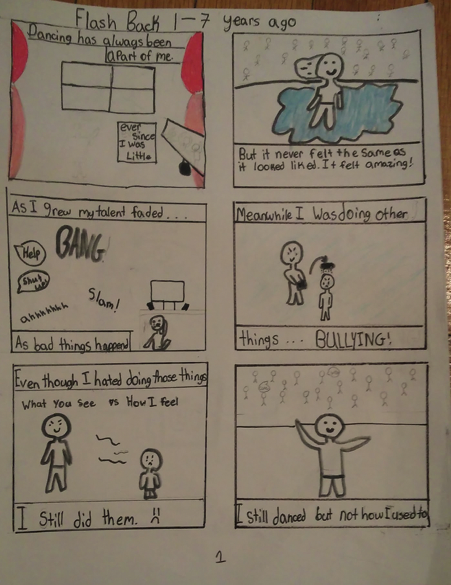 Flash Back 1-7 years ago
Dancing has always been
a part of me.
ever
since
I was
Little
But it never felt the same as
it looked liked. It felt amazing!
As I grew my talent faded...
Help
BANG
Shut up!
ahhhhhhh
Slam!
As bad things happend
Meanwhile I was doing other
things... BULLYING!
Even though I hated doing those things
What you see vs How I feel
I Still did them.
I still danced but not how I used to
1